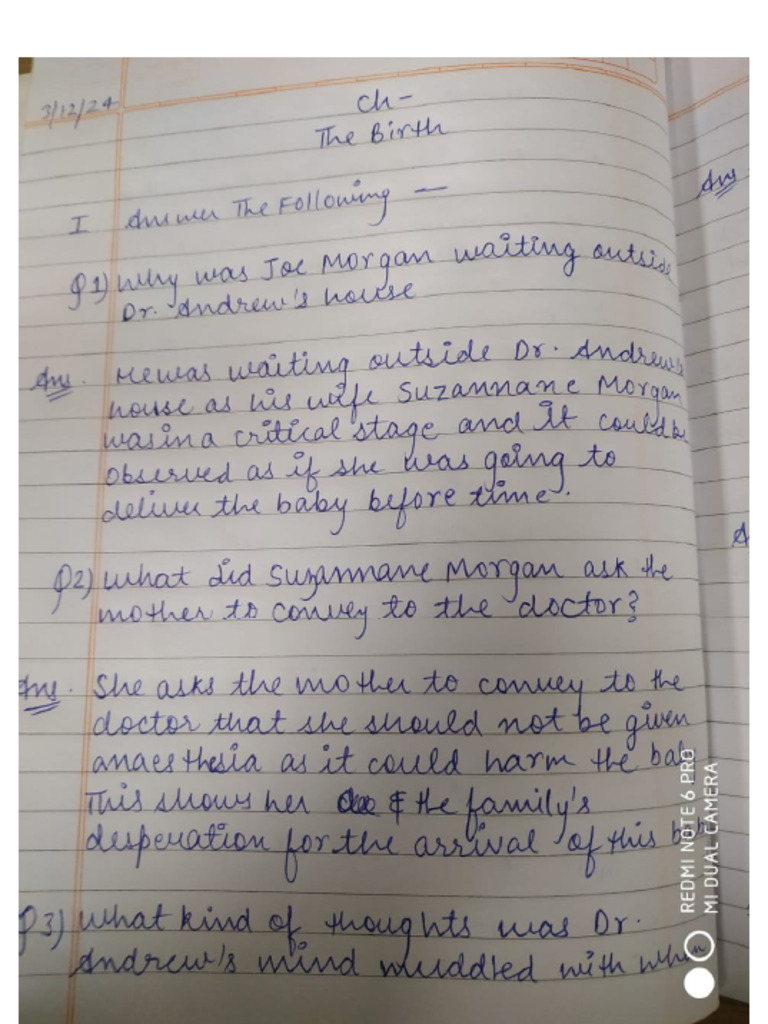 3/12/24
Ch-
The Birth
I Answer The Following —
Q1) Why was Joe Morgan waiting outside
Dr. Andrew's house
Ans. He was waiting outside Dr. Andrew's
house as his wife Suzannane Morgan
was in a critical stage and it could be
observed as if she was going to
deliver the baby before time.
Q2) What did Suzannane Morgan ask the
mother to convey to the doctor?
Ans. She asks the mother to convey to the
doctor that she should not be given
anaesthesia as it could harm the bab
This shows her & the family's
desperation for the arrival of this baby
Q3) What kind of thoughts was Dr.
Andrew's mind muddled with when
Ans
A
REDMI NOTE 6 PRO
MI DUAL CAMERA